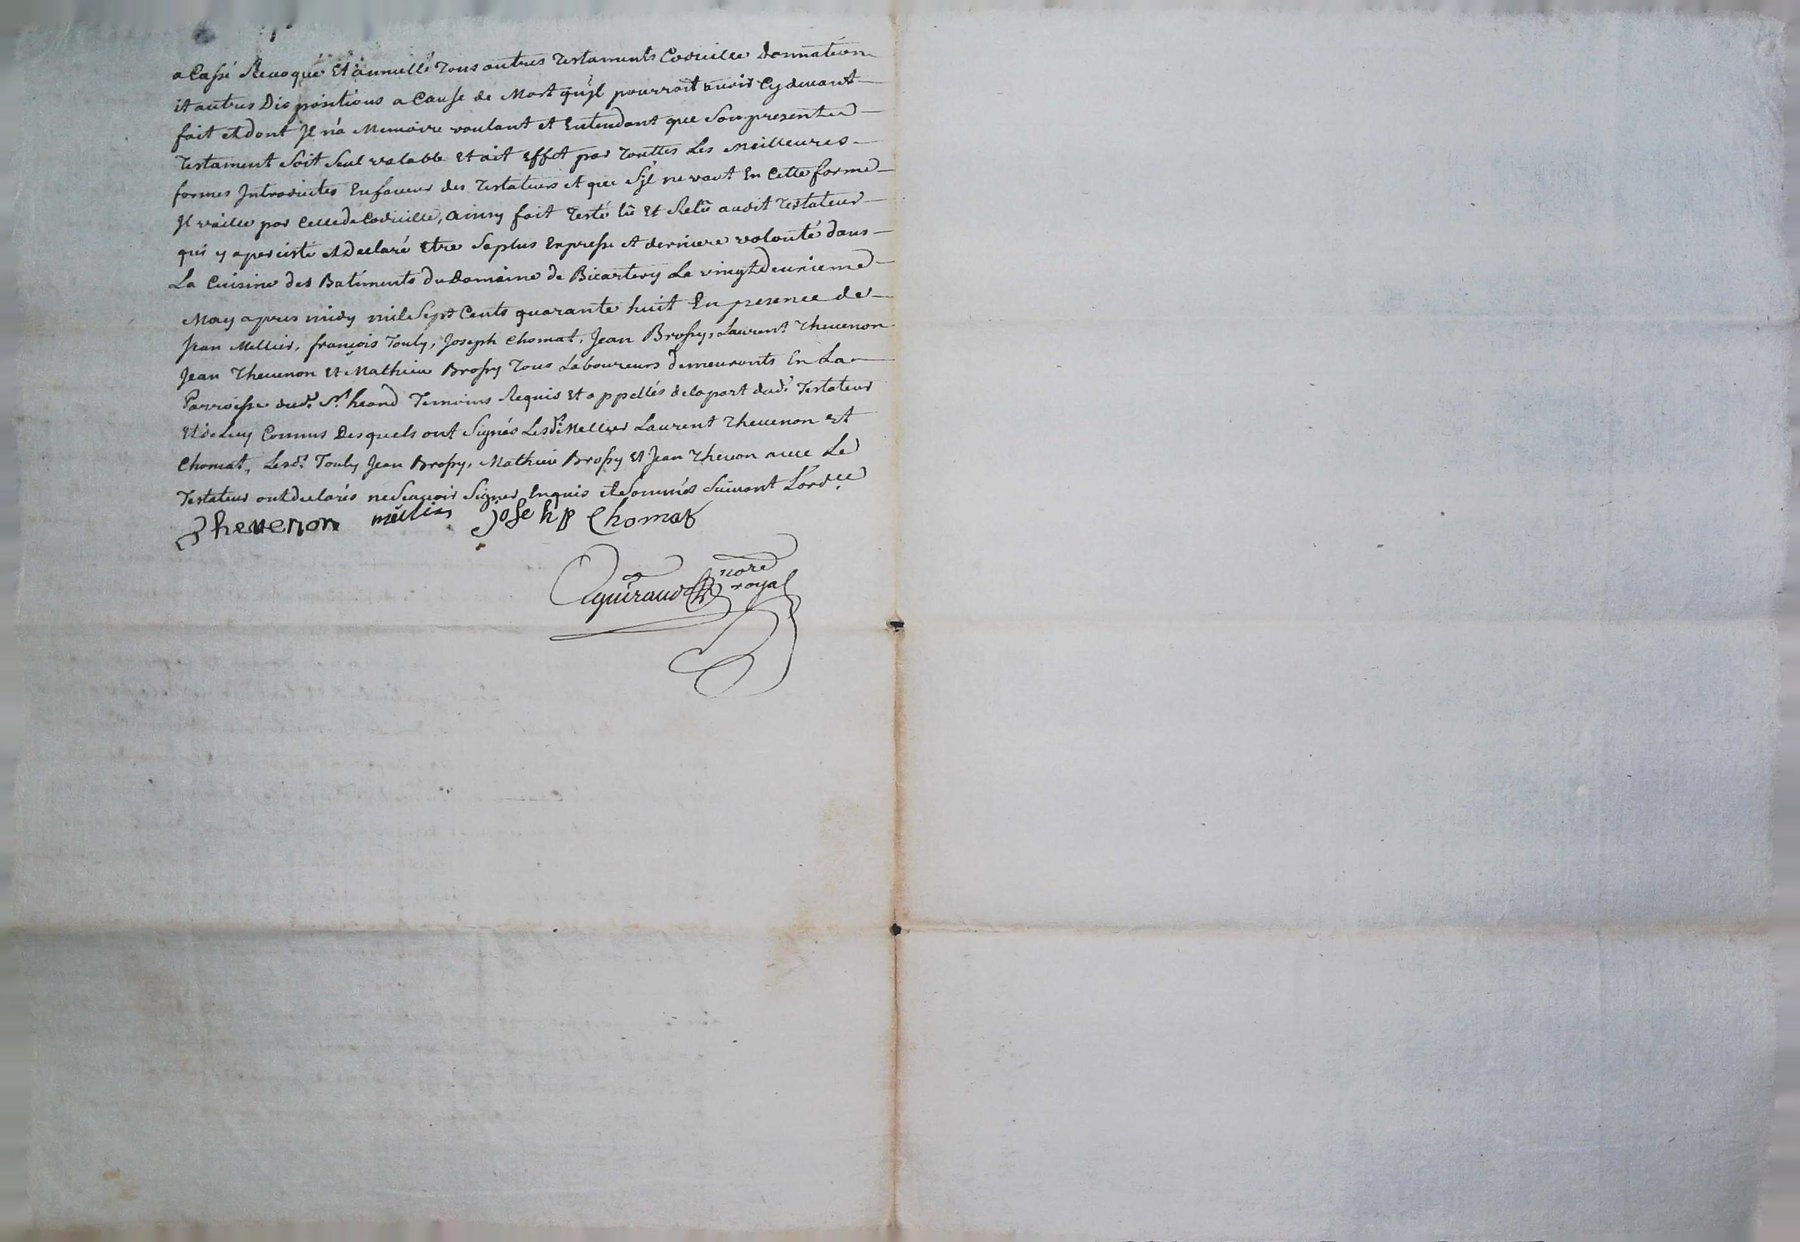 a Cassé Revoqué Et annullé Tous autres Testaments Codicille donnation
et autres Dispositions a Cause de Mort qu'jl pourroit avoir Cy devant
fait et dont Jl n'a Memoire voulant et Entendant que Son present
Testament Soit Seul valable Et ait Effet par Touttes Les Meilleures
formes Introduites En faveur des Testateurs et que S'jl ne vaut En Cette forme
Jl vaille par Celle de Codicille, Ainsy fait Testé lû Et Relû audit Testateur
qui y a persisté et declaré Etre Sa plus Expresse et derniere volonté dans
La Cuisine des Batiments du domaine de Bicartery Le vingt deuxieme
May apres midy mil Sept Cents quarante huit En presence de
Jean Mellier, françois Touly, Joseph Chomat, Jean Brossy, Laurent Thevenon
Jean Thevenon Et Mathieu Brossy Tous Laboureurs demeurants En La
Parroisse dud. St. heand Temoins Requis Et appellés de la part dud. Testateur
Et de Luy Connus Desquels ont Signés Lesd. Mellier Laurent Thevenon Et
Chomat, Lesd. Touly Jean Brossy, Mathieu Brossy Et Jean Thevenon avec Le
Testateur ont declarés ne Scavoir Signer Enquis et Sommés Suivant L'ord.ce
Thevenon mellier joseph Chomat
nore
royal